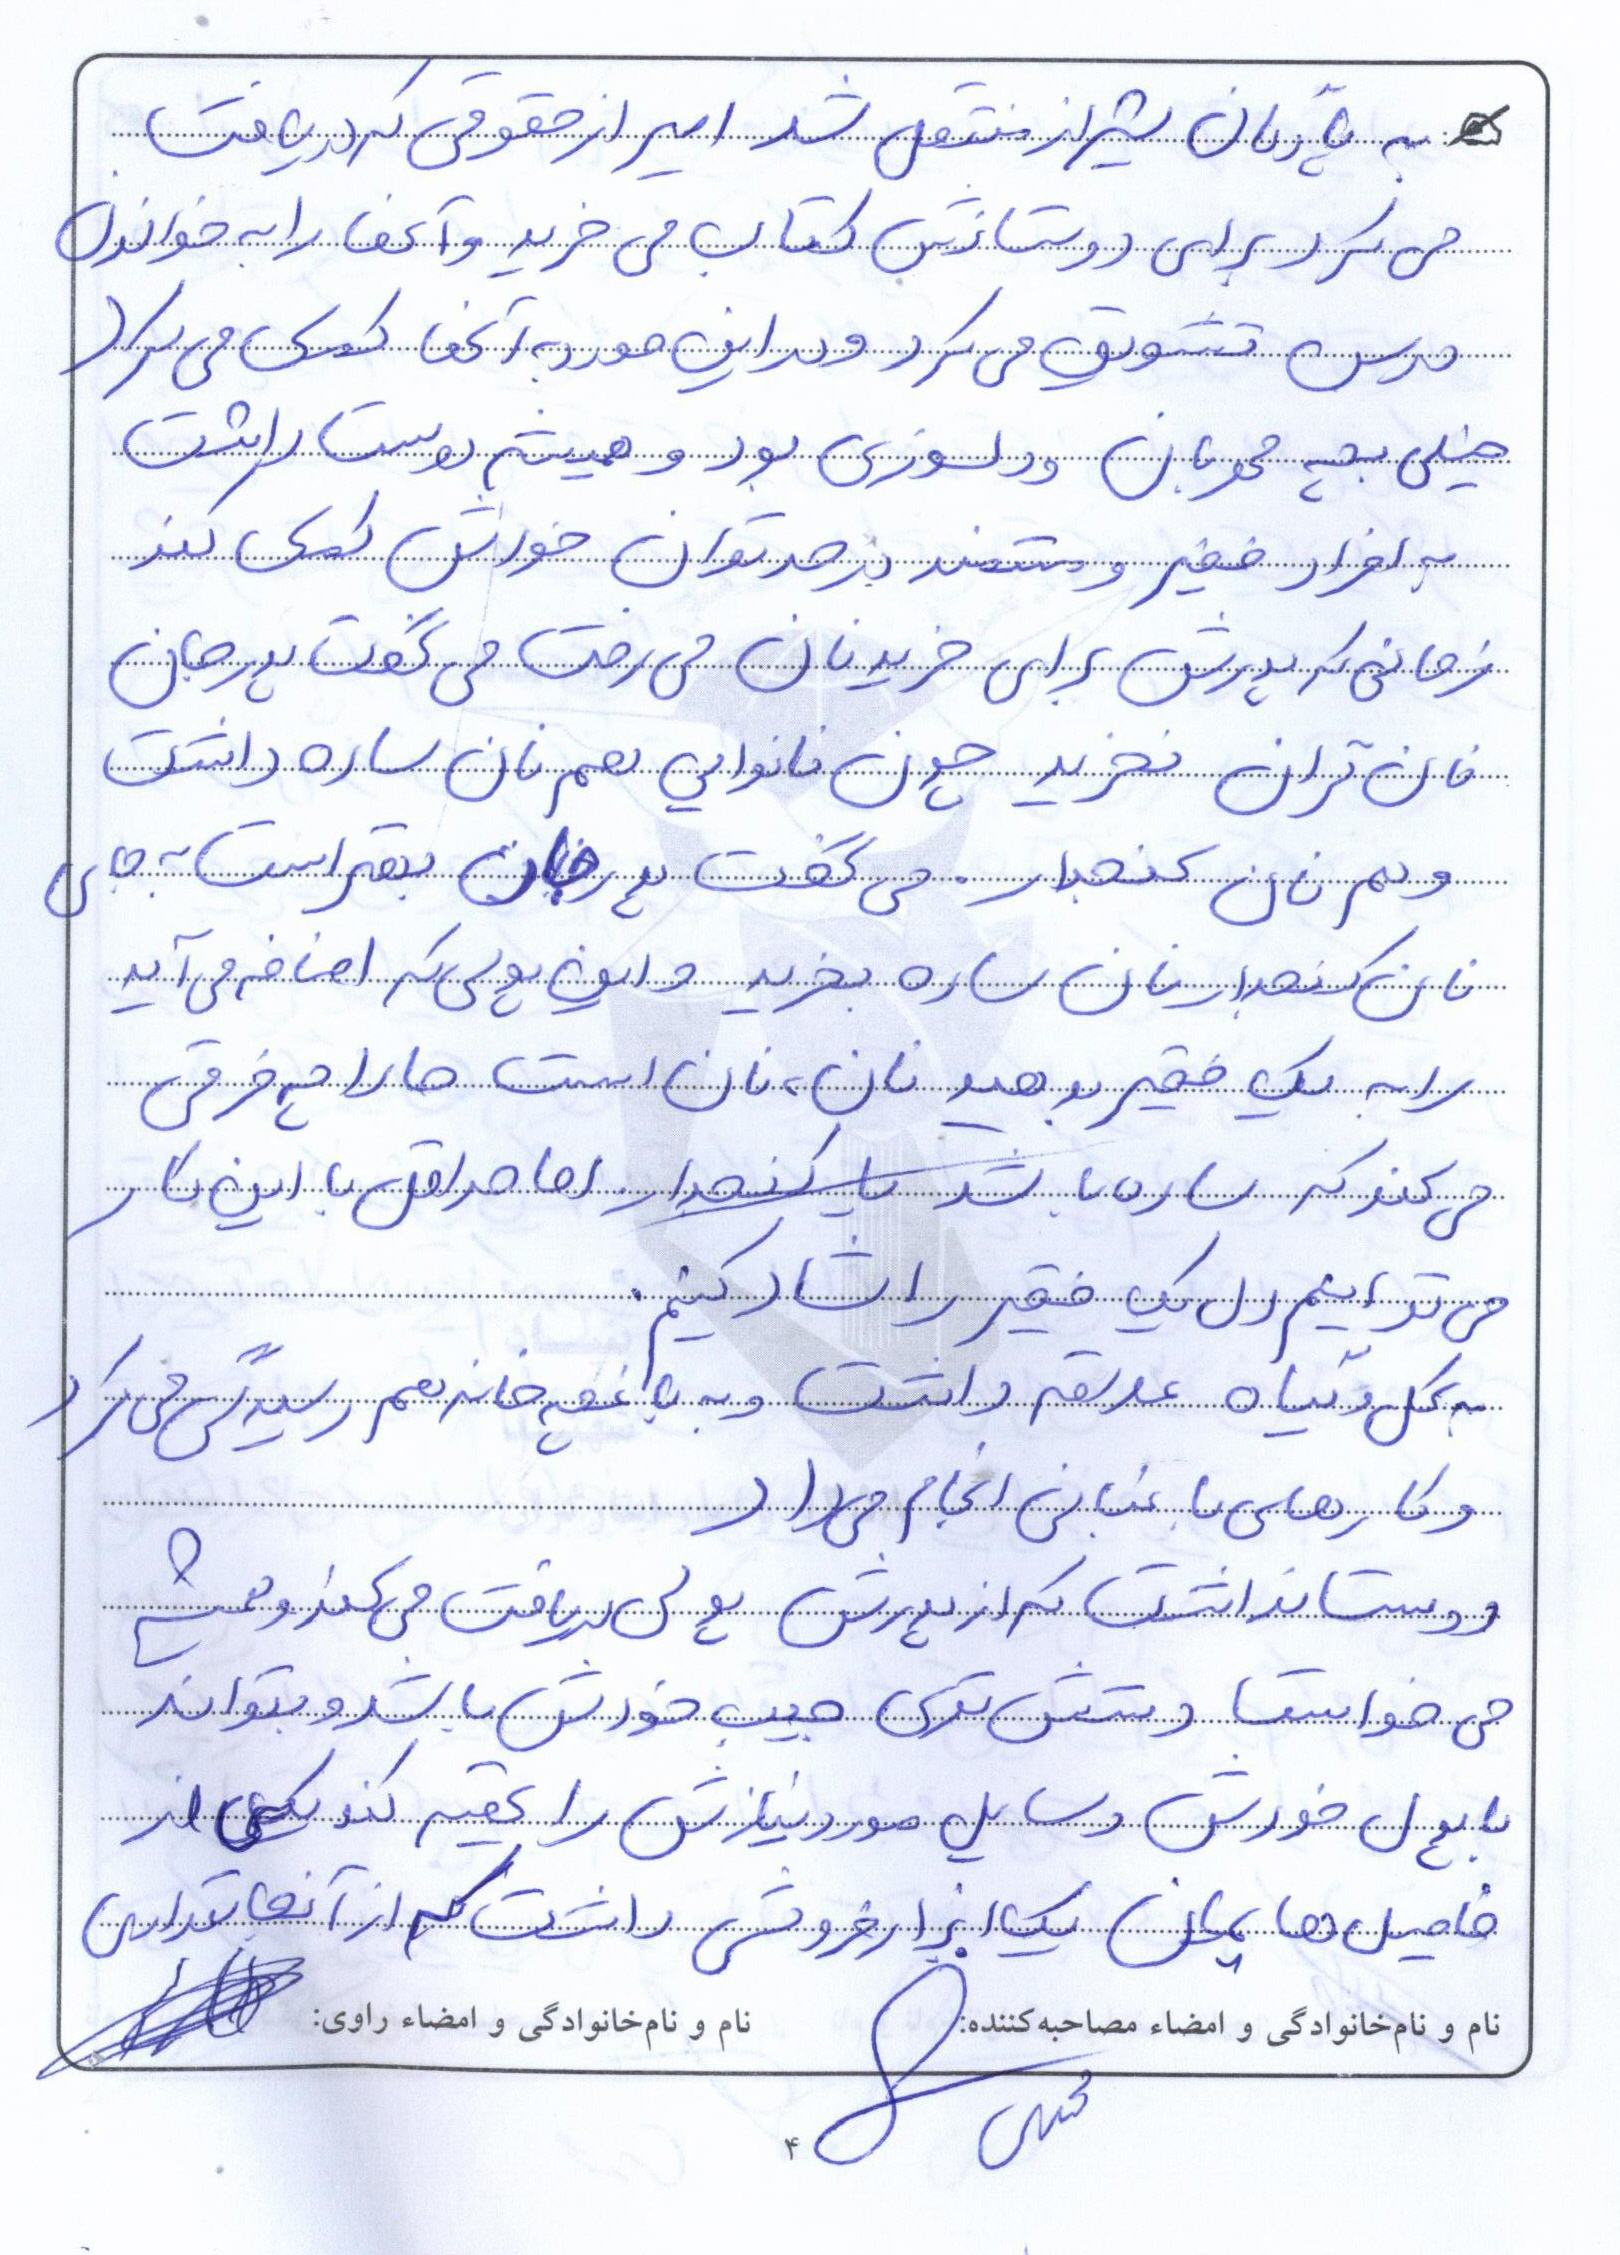 به پادگان شیراز منتقل شد امیر از حقوقی که دریافت
می کرد برای دوستانش کتاب می خرید و آنها را به خواندن
درس تشویق می کرد و در این مورد به آنها کمک می کرد
خیلی بچه مهربان و دلسوزی بود و همیشه دوست داشت
به افراد فقیر و مستمند در حد توان خودش کمک کند
زمانی که پدرش برای خرید نان می رفت می گفت پدر جان
نان گران نخرید چون نانوایی هم نان ساده داشت
و هم نان کنجدار. می گفت پدر جان بهتر است به جای
نان کنجدار نان ساده بخرید و این پولی که اضافه می آید
را به یک فقیر بدهید نان، نان است ما را چه فرقی
می کند که ساده باشد یا کنجدار اما حداقل با این کار
می توانیم دل یک فقیر را شاد کنیم.
به گل و گیاه علاقه داشت و به باغچه خانه هم رسیدگی می کرد
و کارهای باغبانی انجام می داد
دوست نداشت که از پدرش پولی دریافت می کند و همیشه
می خواست دستش توی جیب خودش باشد و بتواند
با پول خودش وسایل مورد نیازش را تهیه کند یکی از
فامیل هایمان یک ابزار فروشی داشت که از آنجا تعدادی
نام و نام‌خانوادگی و امضاء مصاحبه‌کننده:
نام و نام‌خانوادگی و امضاء راوی:
۴